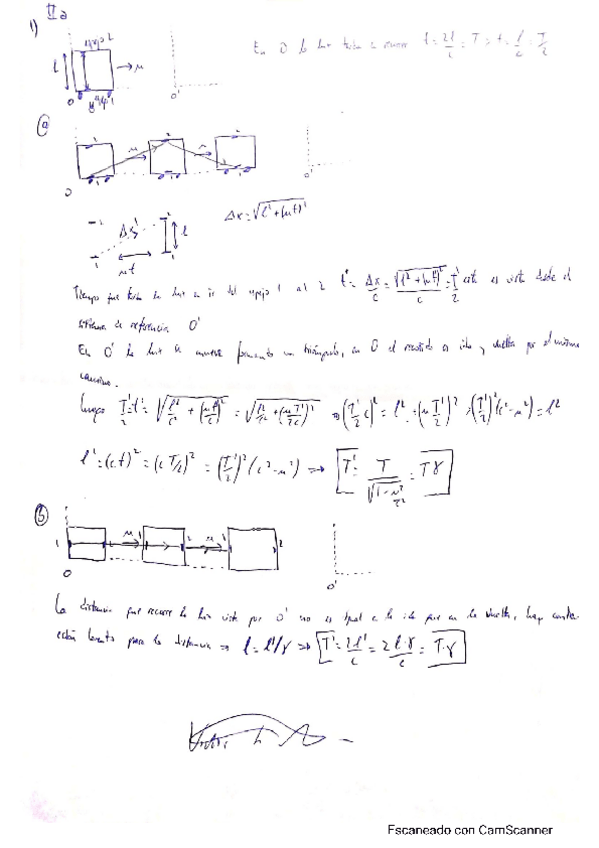 IIa
1)
En O la luz tarda en recorrer t = 2l/c = T → t = l/c = T/2
l
→ u
O O'
a)
Δx = √(l² + (ut)²)
ut
Tiempo que tarda la luz en ir del espejo 1 al 2 t' = Δx/c = √(l² + (ut')²)/c = T'/2 esto es visto desde el
sistema de referencia O'
En O' la luz se mueve formando un triángulo, en O el recorrido es ida y vuelta por el mismo
camino.
luego T'/2 = t' = √(l²/c² + (ut'/c)²) = √(l²/c² + (uT'/2c)²) ⇒ (T'/2 c)² = l² + (u T'/2)² → (T'/2)² (c² - u²) = l²
l² = (ct)² = (cT/2)² = (T'/2)² (c² - u²) → T' = T/√(1 - u²/c²) = Tγ
b)
O O'
La distancia que recorre la luz vista por O' no es igual a la ida que en la vuelta, hay
para la distancia → l = l'/γ → T' = 2l'/c = 2l·γ/c = T·γ
Escaneado con CamScanner